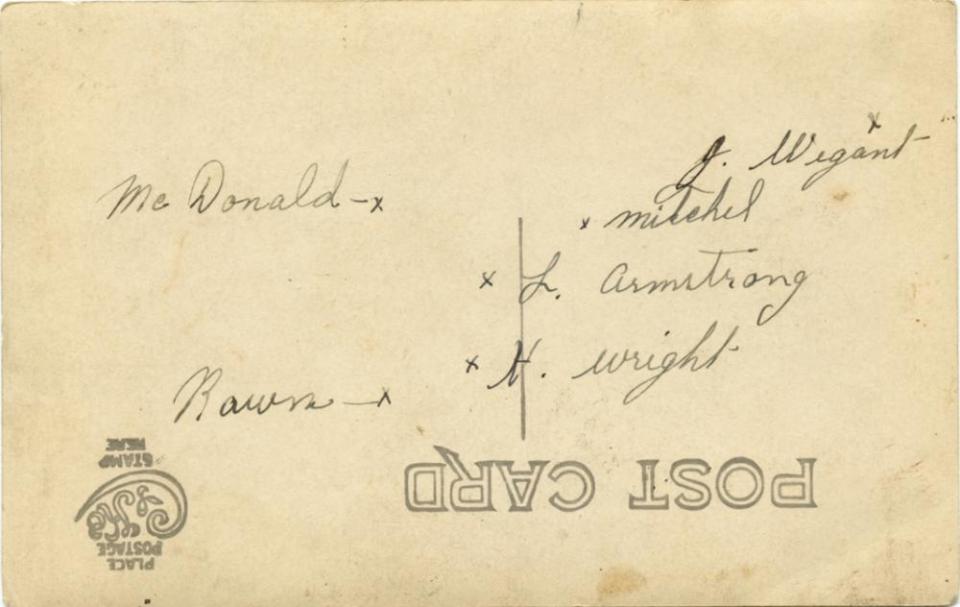 J. Wegant
Mc Donald -x
x mitchel
x L. Armstrong
x H. wright
Rawn -x
POST CARD
PLACE
POSTAGE
STAMP
HERE